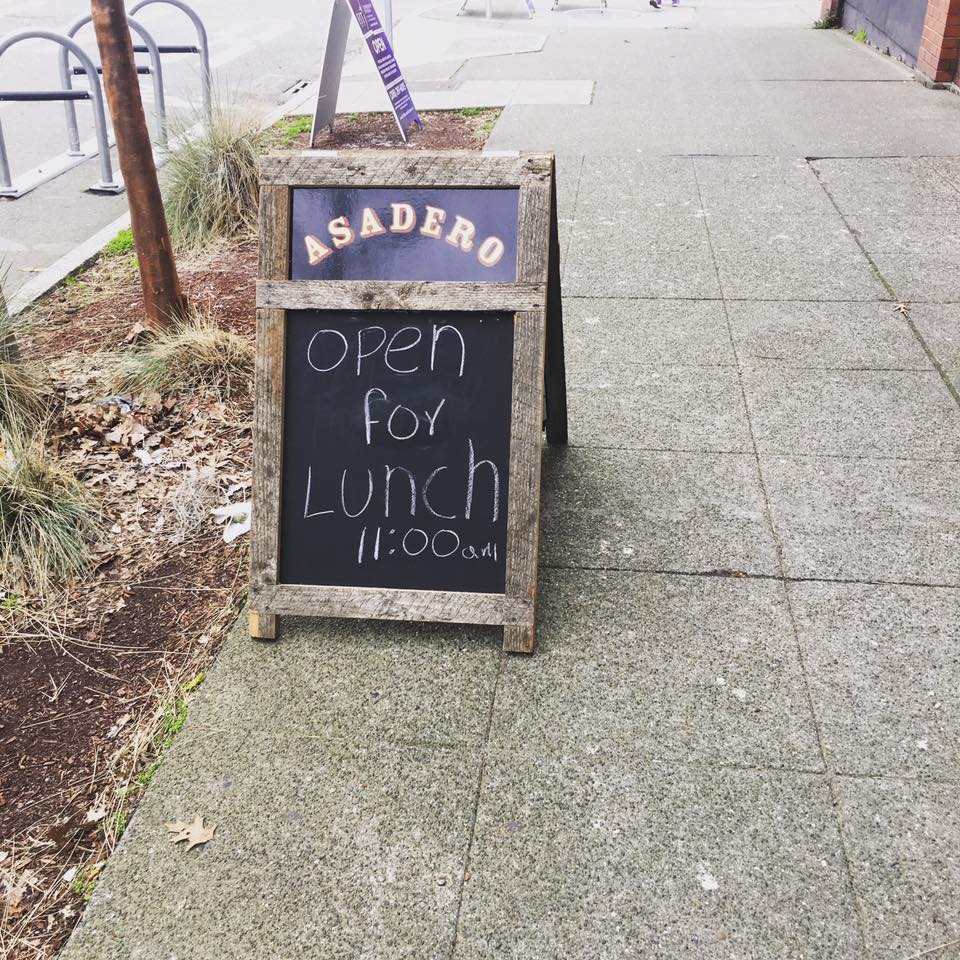 OPEN
ASADERO
open
for
Lunch
11:00am